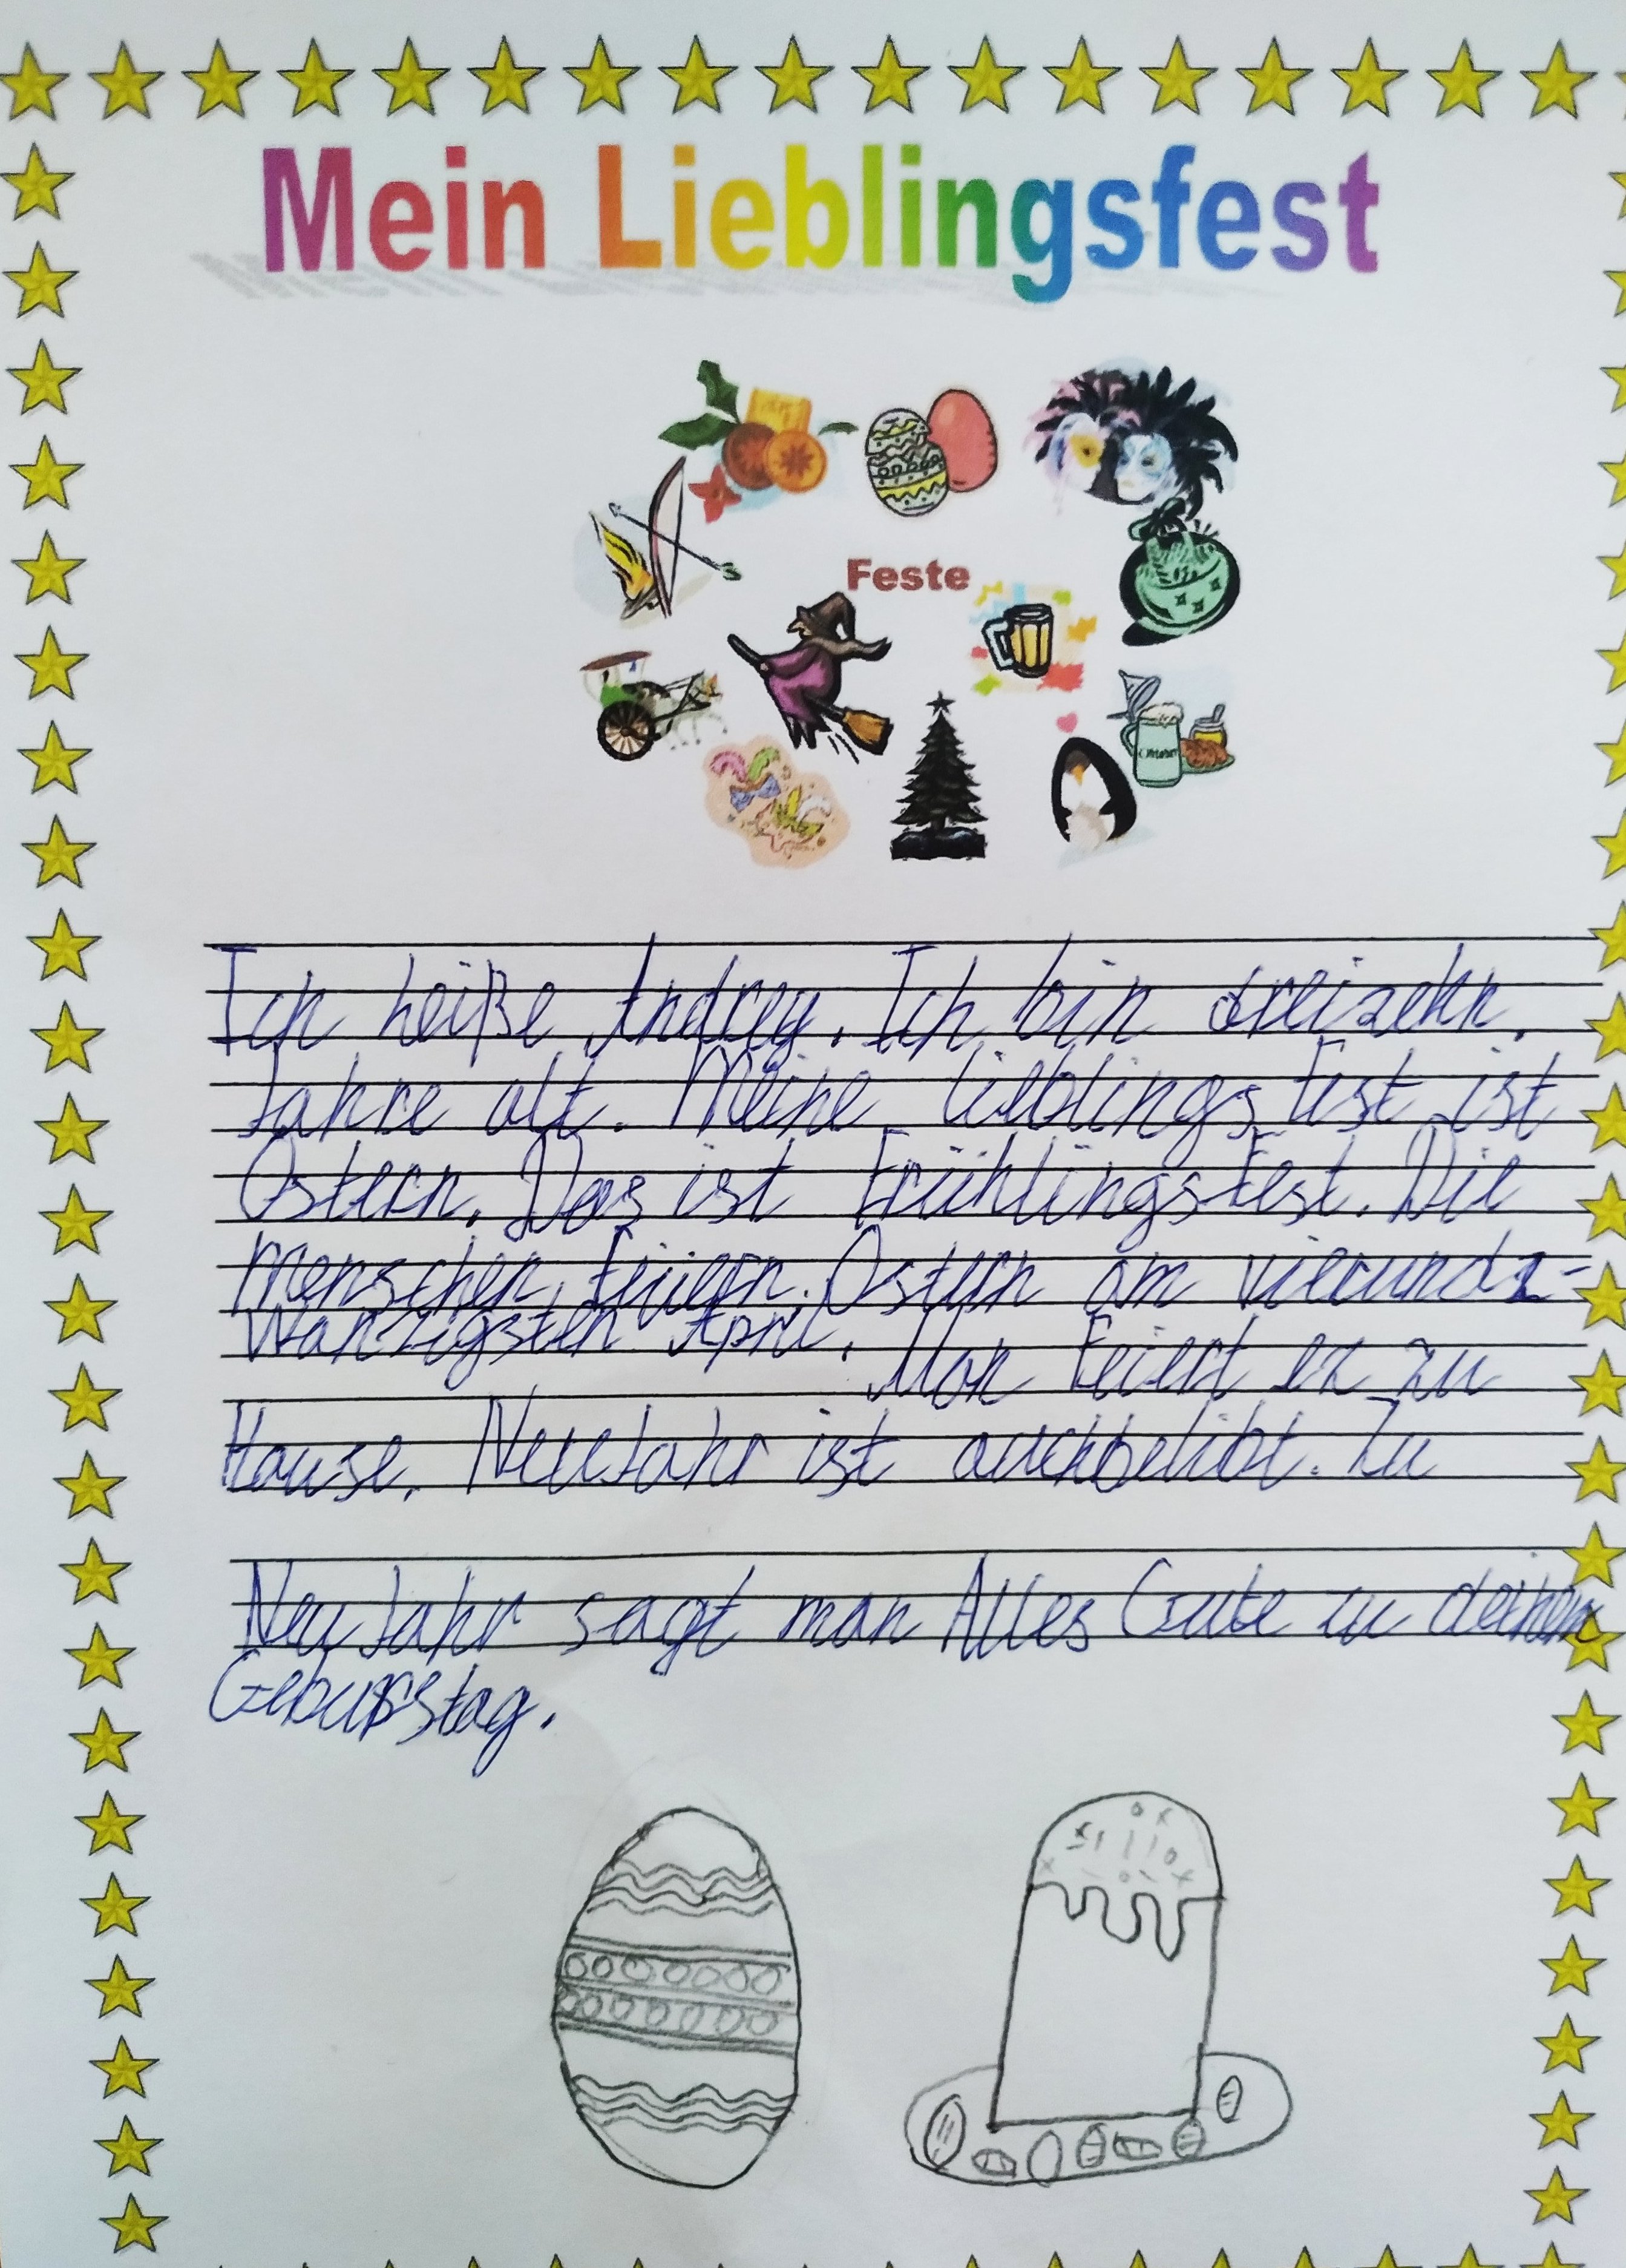 Mein Lieblingsfest
Feste
Oktober
Ich heiße Andrey. Ich bin dreizehn
Jahre alt. Meine Lieblingsfest ist
Ostern. Das ist Frühlingsfest. Die
Menschen feiern Ostern am vierundz-
wanzigsten April. Man feiert es zu
Hause. Neujahr ist auch belibt. Zu
Neujahr sagt man Alles Gute zu deinem
Geburstag.